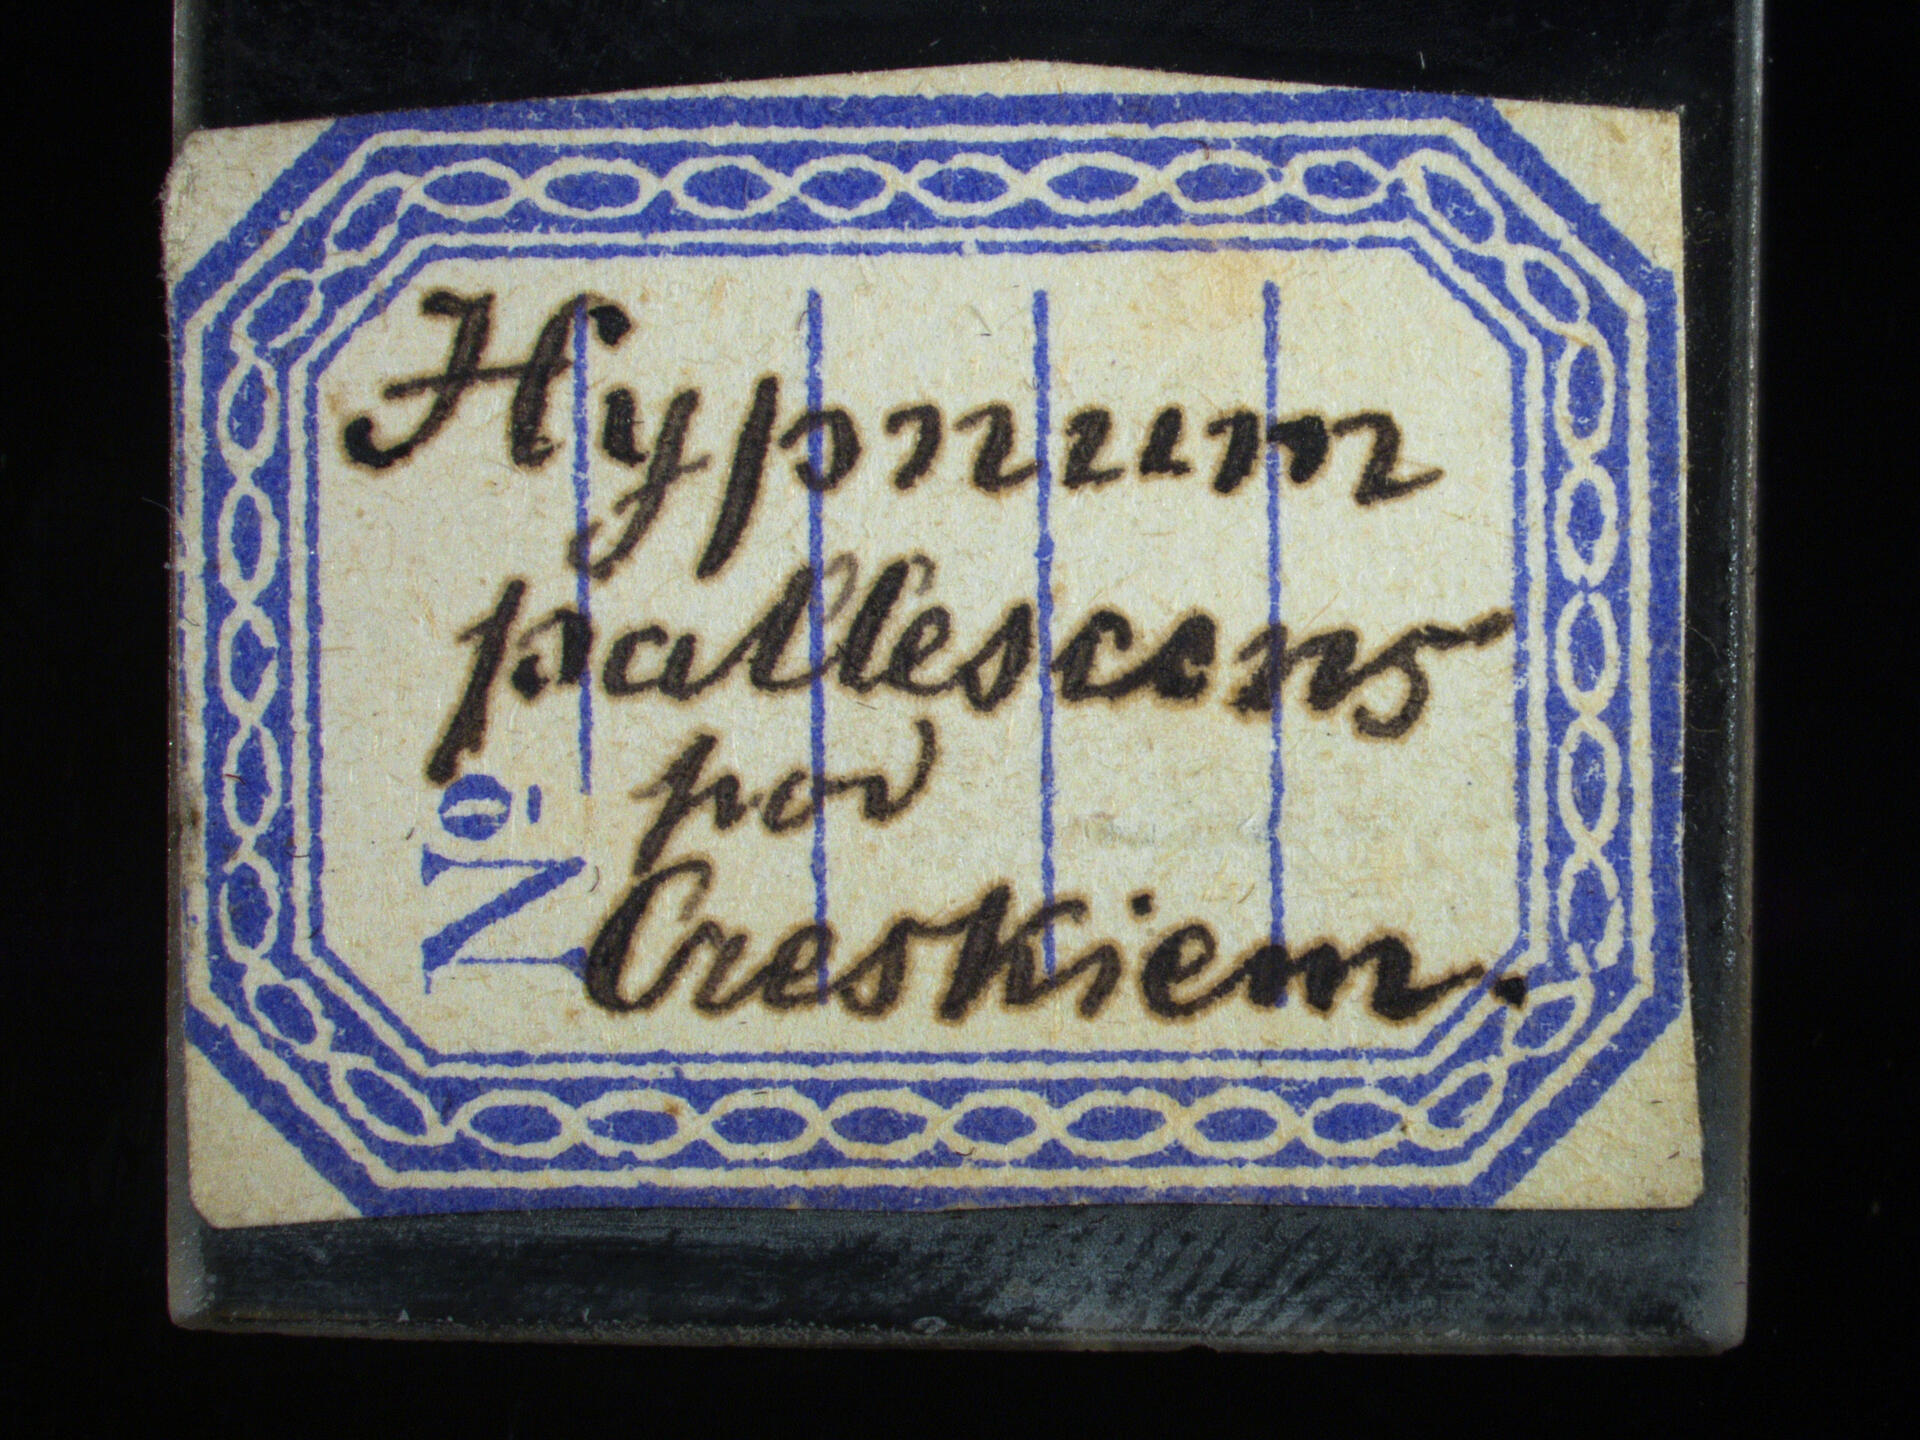 Hypnum
pallescens
pod
Creskiem.
Nº